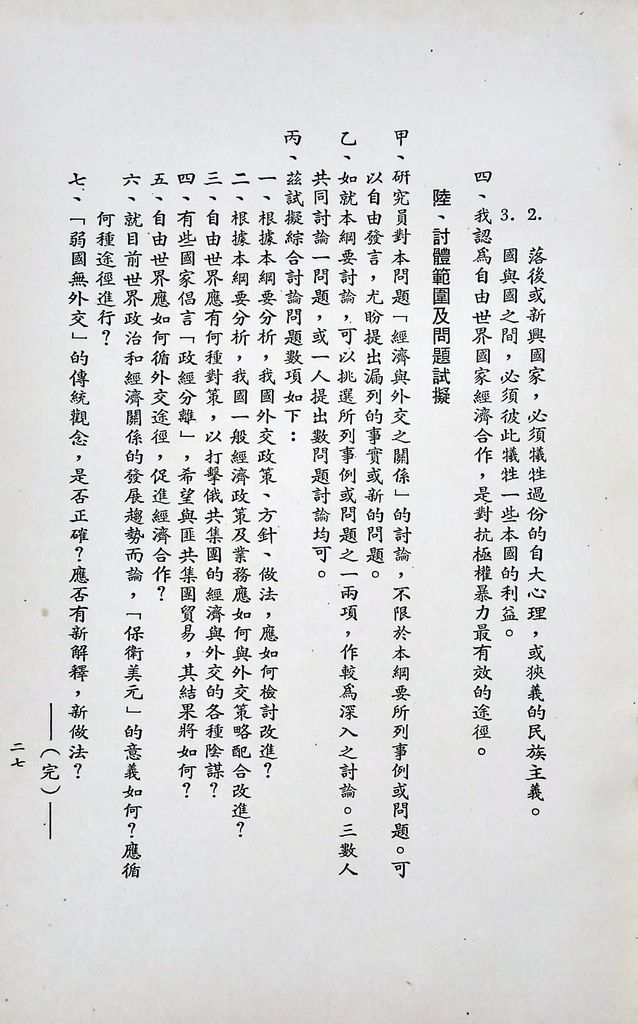 2. 落後或新興國家，必須犧牲過份的自大心理，或狹義的民族主義。
3. 國與國之間，必須彼此犧牲一些本國的利益。
四、我認爲自由世界國家經濟合作，是對抗極權暴力最有效的途徑。
陸、討體範圍及問題試擬
甲、研究員對本問題「經濟與外交之關係」的討論，不限於本綱要所列事例或問題。可
以自由發言，尤盼提出漏列的事實或新的問題。
乙、如就本綱要討論，可以挑選所列事例或問題之一兩項，作較爲深入之討論。三數人
共同討論一問題，或一人提出數問題討論均可。
丙、茲試擬綜合討論問題數項如下：
一、根據本綱要分析，我國外交政策、方針、做法，應如何檢討改進？
二、根據本綱要分析，我國一般經濟政策及業務應如何與外交策略配合改進？
三、自由世界應有何種對策，以打擊俄共集團的經濟與外交的各種陰謀？
四、有些國家倡言「政經分離」，希望與匪共集團貿易，其結果將如何？
五、自由世界應如何循外交途徑，促進經濟合作？
六、就目前世界政治和經濟關係的發展趨勢而論，「保衛美元」的意義如何？應循
何種途徑進行？
七、「弱國無外交」的傳統觀念，是否正確？應否有新解釋，新做法？
——（完）——
二七